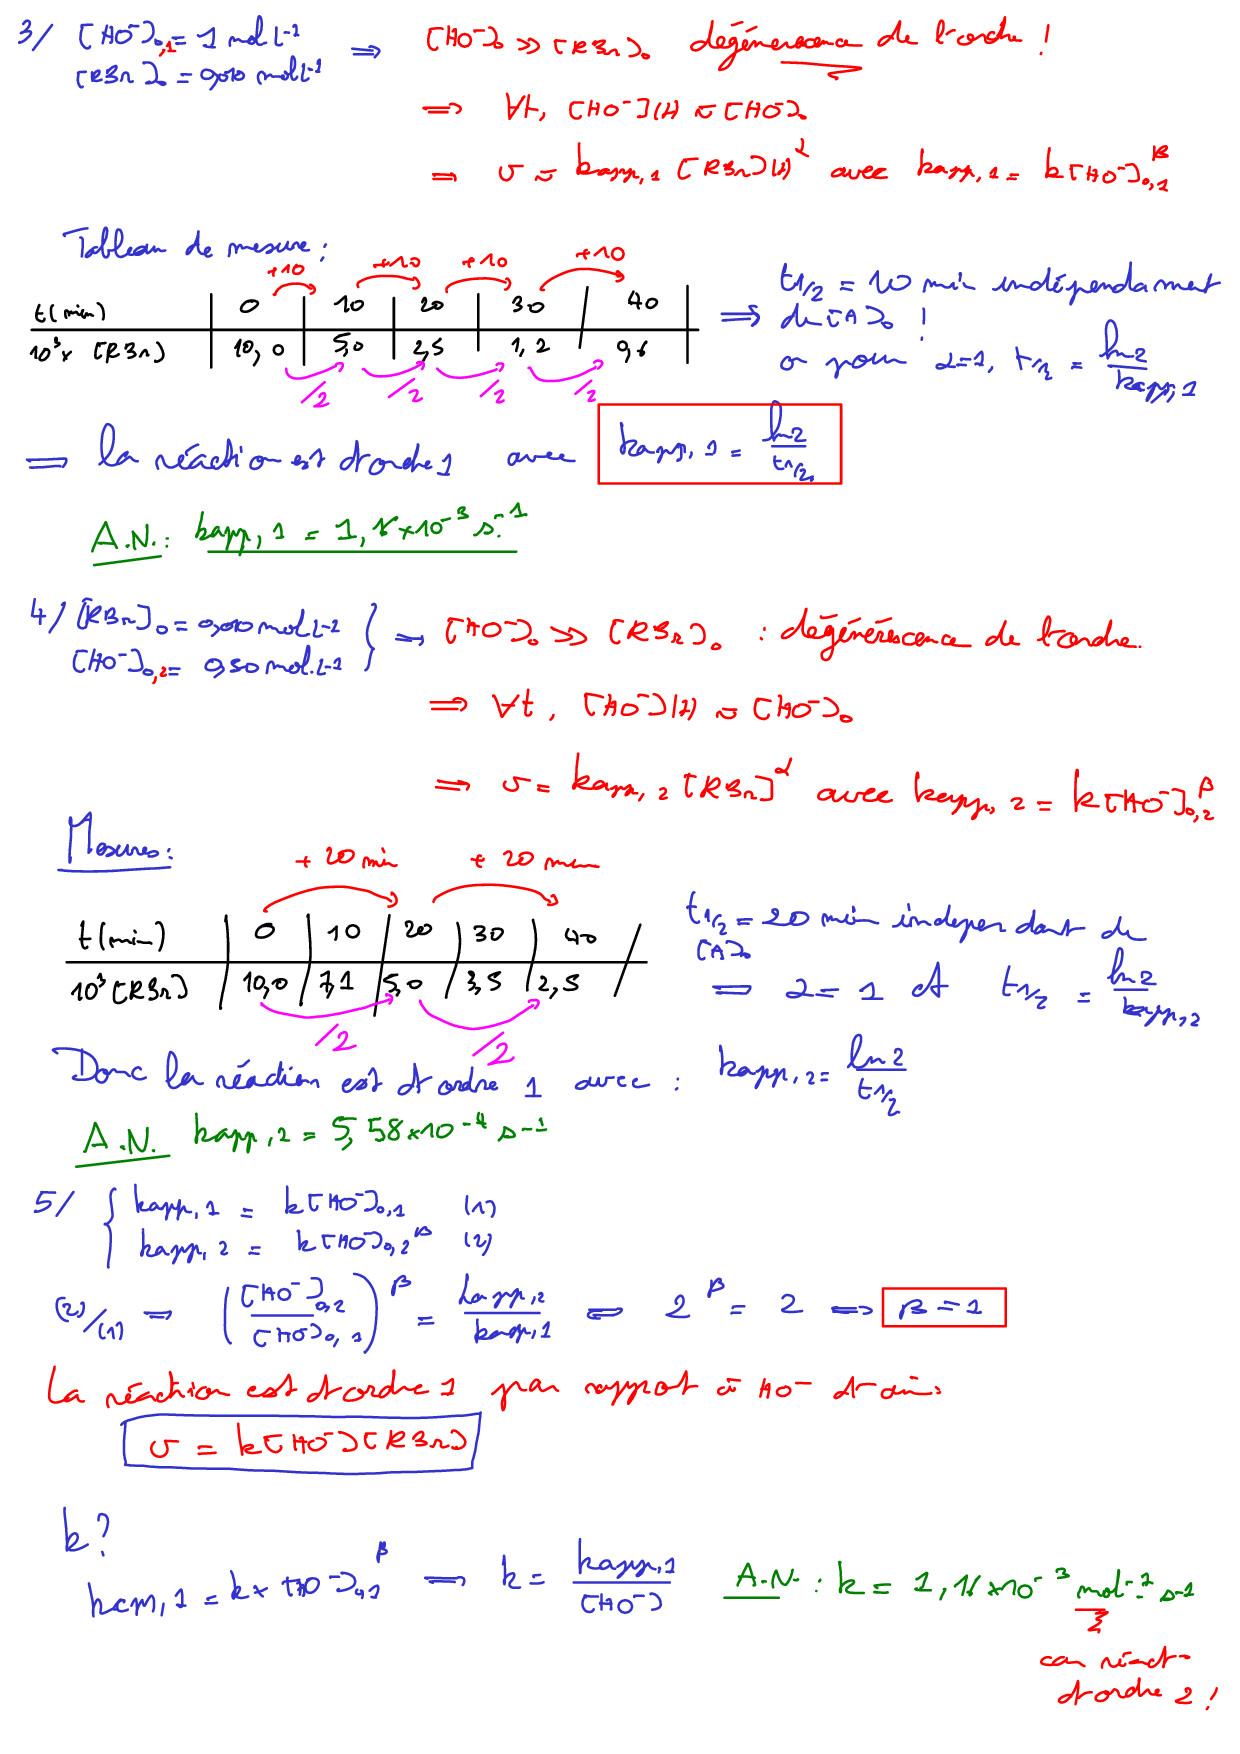 3/ [HO⁻]₀,₁ = 1 mol L⁻¹ ⟹ [HO⁻]₀ ≫ [RBr]₀ dégénérescence de l'ordre !
[RBr]₀ = 0,010 mol L⁻¹
⟹ ∀t, [HO⁻](t) ≈ [HO⁻]₀
⟹ v ≈ kapp,1 [RBr](t)^α avec kapp,1 = k[HO⁻]₀,₁^β
Tableau de mesure :
+10 +10 +10 +10
t(min) | 0 | 10 | 20 | 30 | 40
10³× [RBr] | 10,0 | 5,0 | 2,5 | 1,2 | 0,6
/2 /2 /2 /2
⟹ t1/2 = 10 min indépendament
de [A]₀ !
or pour α=1, t1/2 = ln2/kapp,1
⟹ la réaction est d'ordre 1 avec kapp,1 = ln2/t1/2
A.N. : kapp,1 = 1,16×10⁻³ s⁻¹
4/ [RBr]₀ = 0,010 mol L⁻¹ } ⟹ [HO⁻]₀ ≫ [RBr]₀ : dégénérescence de l'ordre.
[HO⁻]₀,₂ = 0,50 mol.L⁻¹
⟹ ∀t, [HO⁻](t) ≈ [HO⁻]₀
⟹ v = kapp,2 [RBr]^α avec kapp,2 = k[HO⁻]₀,₂^β
Mesures :
+ 20 min + 20 min
t(min) | 0 | 10 | 20 | 30 | 40
10³[RBr] | 10,0 | 7,1 | 5,0 | 3,5 | 2,5
/2 /2
t1/2 = 20 min indépendant de
[A]₀
⟹ α = 1 et t1/2 = ln2/kapp,2
Donc la réaction est d'ordre 1 avec : kapp,2 = ln2/t1/2
A.N. kapp,2 = 5,58×10⁻⁴ s⁻¹
5/ { kapp,1 = k[HO⁻]₀,₁ (1)
kapp,2 = k[HO⁻]₀,₂^β (2)
(2)/(1) ⟹ ([HO⁻]₀,₂/[HO⁻]₀,₁)^β = kapp,2/kapp,1 ⟺ 2^β = 2 ⟹ β = 1
La réaction est d'ordre 1 par rapport à HO⁻ d'où :
v = k[HO⁻][RBr]
k ?
kapp,1 = k × [HO⁻]₀,₁^β ⟹ k = kapp,1/[HO⁻] A.N. : k = 1,16×10⁻³ mol⁻¹. s⁻¹
car réact°
d'ordre 2 !